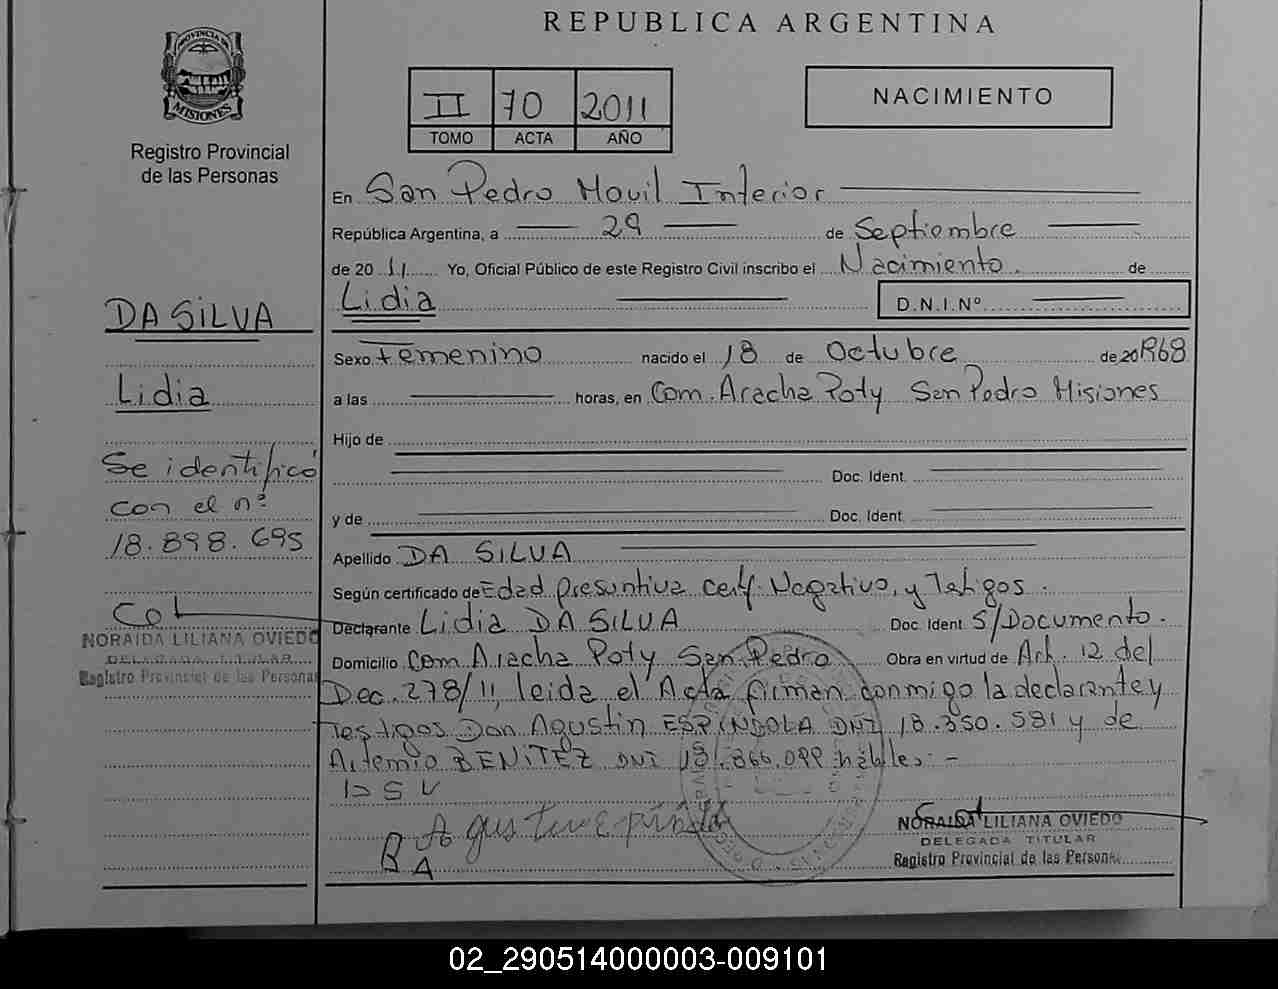 REPUBLICA ARGENTINA
PROVINCIA DE
MISIONES
Registro Provincial
de las Personas
II 70 2011
TOMO ACTA AÑO
NACIMIENTO
En San Pedro Movil Interior
República Argentina, a 29 de Septiembre
de 20 11 Yo, Oficial Público de este Registro Civil inscribo el Nacimiento de
Lidia D.N.I.Nº
Sexo Femenino nacido el 18 de Octubre de 20 1968
a las horas, en Com. Aracha Poty San Pedro Misiones
Hijo de
Doc. Ident.
y de Doc. Ident.
Apellido DA SILVA
Según certificado de Edad presuntiva cert. Negativo, y Testigos.
Declarante Lidia DA SILVA Doc. Ident S/Documento.
Domicilio Com Aracha Poty San Pedro Obra en virtud de Art. 12 del
Dec. 278/11, leida el Acta firman conmigo la declarante y
Testigos Don Agustin ESPINDOLA DNI 18.350.581 y de
Artemio BENITEZ DNI 18.866.099 hábiles.-
DSV
Agustin Epinda
BA
NORAIDA LILIANA OVIEDO
DELEGADA TITULAR
Registro Provincial de las Persona
DA SILVA
Lidia
Se identificó
con el nº
18.898.695
NORAIDA LILIANA OVIEDO
DELEGADA TITULAR
Registro Provincial de las Persona
02_290514000003-009101